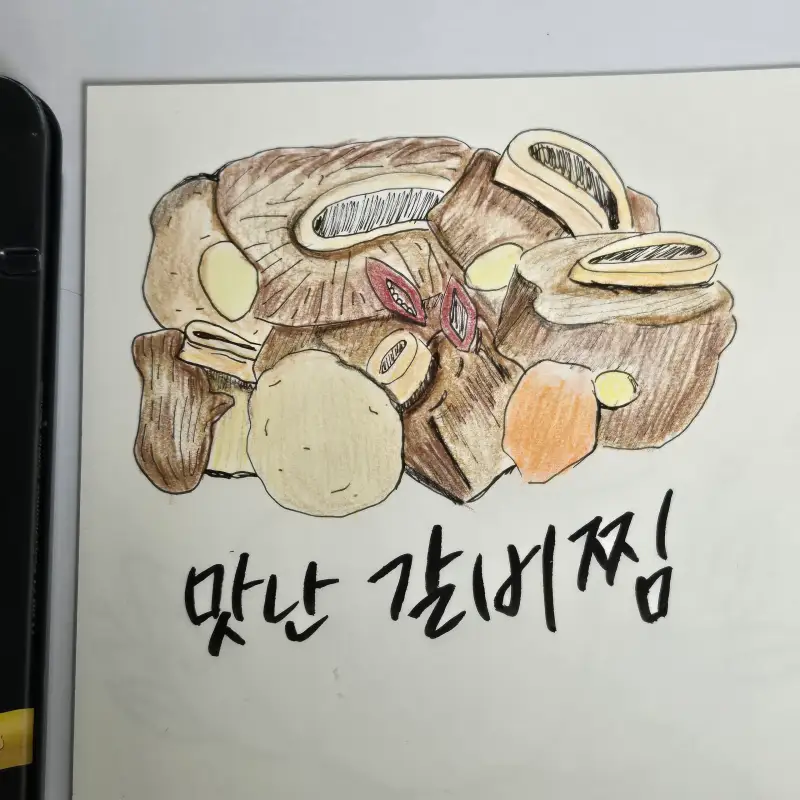 맛난 갈비찜